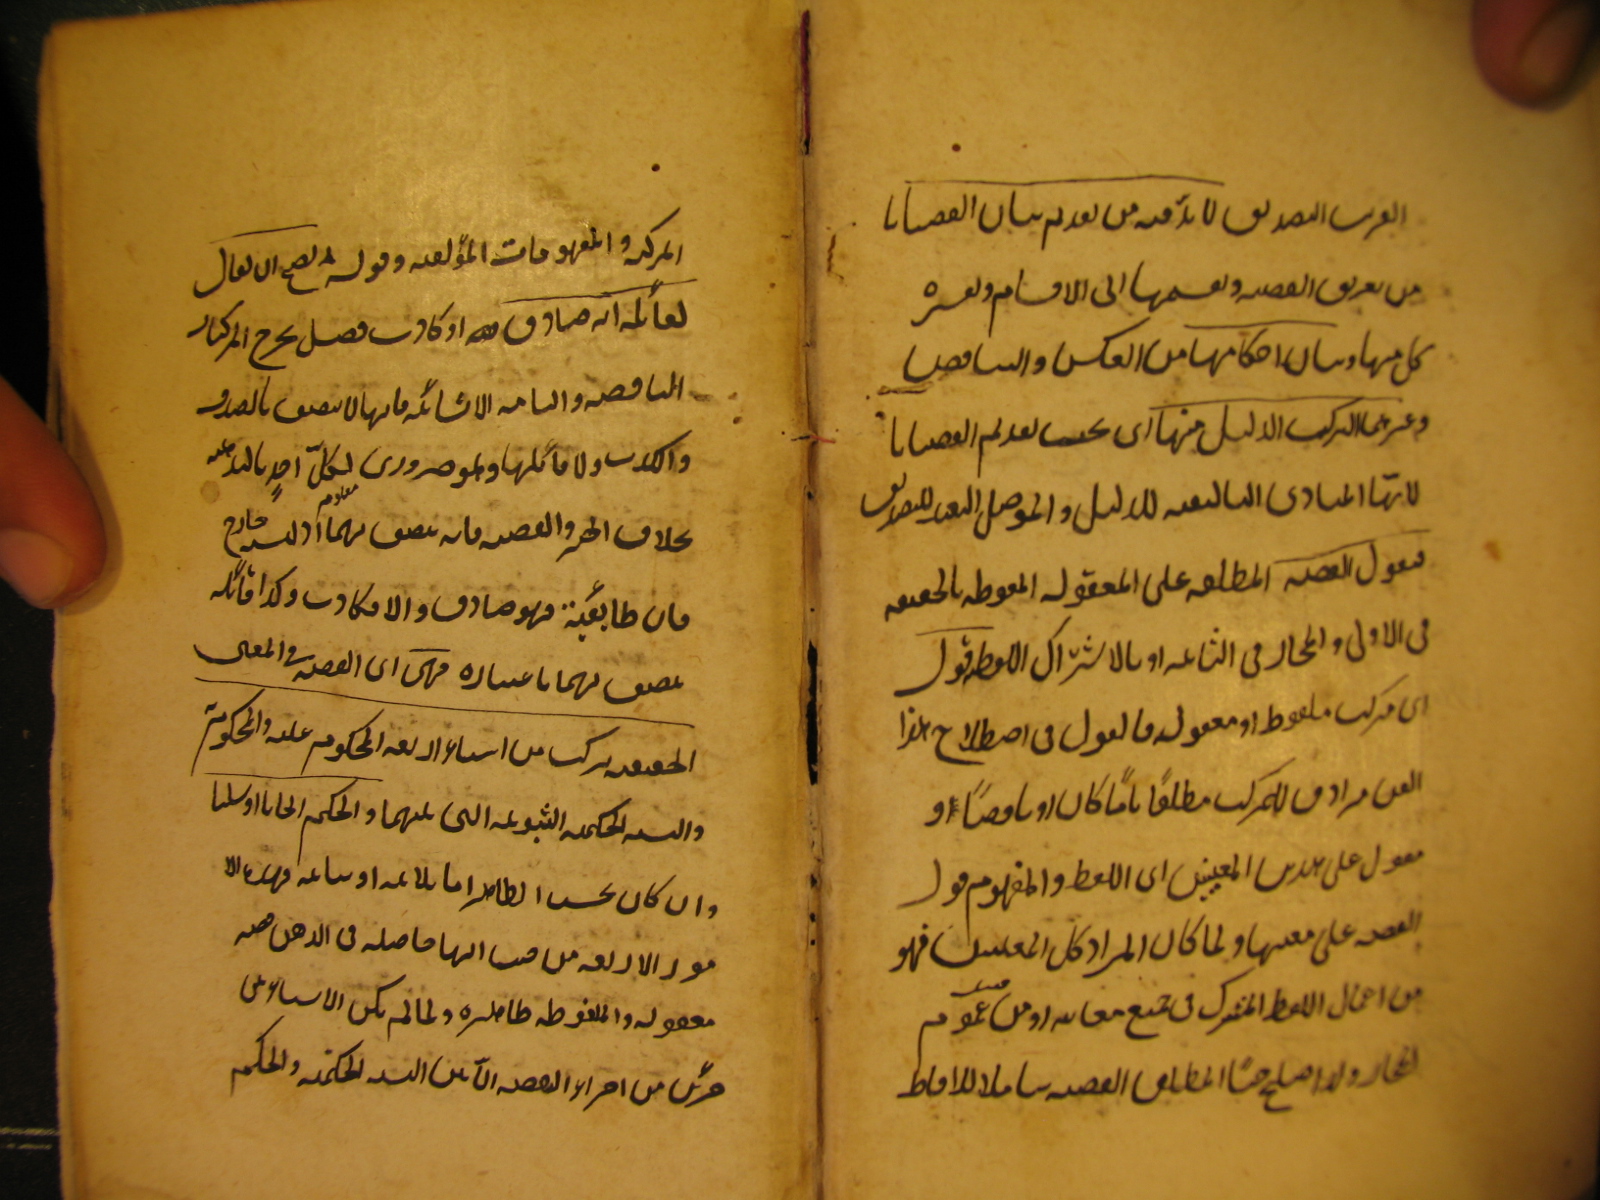 القريب التصديق لا بد فيه من تقديم بيان القضايا
من تعريف القضية وتقسيمها الى الاقسام وتعريف
كل منها وبيان احكامها من العكس والتناقض
التركيب الدليل منها اى بحسب تقديم القضايا
لانها المبادى التاليفية للدليل والموصل البعيد للتصديق
فنقول القضية المطلقة على المعقولة الملفوظة بالحقيقة
فى الاولى والمجاز فى الثانية او بالاشتراك اللفظى قول
اى مركب ملفوظ او معقول فالقول فى اصطلاح هذا
الفن مرادف للمركب مطلقًا تامًا كان او ناقصًا او
مقول على هذين المعنيين اى اللفظ والمفهوم قول
القضية على معنييها ولما كان المراد كل المعنيين فهو
من اعمال اللفظ المشترك فى جميع معانيه او من قبيل عموم
المجاز ولذا صلح جنسًا لمطلق القضية شاملا للالفاظ
المركبة والمفهومات المؤلفة وقوله يصح ان يقال
لقائله انه صادق فيه او كاذب فصل يخرج المركبات
الناقصة والتامة الانشائية فانها لا يتصف بالصدق
والكذب ولا قائلها وهو ضرورى لكل احد بالبديهة
بخلاف الخبر والقضية فانه يتصف بهما اذ لنسبته معلوم خارج
فان طابقته فهو صادق والا فكاذب وكذا قائله
يتصف بهما باعتباره فهى اى القضية فى المعنى
الحقيقة يتركب من اشياء اربعة المحكوم عليه والمحكوم به
والنسبة الحكمية الثبوتية التى بينهما والحكم ايجابا او سلبا
وان كان بحسب الظاهر اما ثلاثية او ثنائية فهذه الا
مور الاربعة من حيث انها حاصلة فى الذهن قضية
معقولة والملفوظة ظاهرة ولما لم يكن الاشياء
جزئين من اجزاء القضية النسبة الحكمية والحكم